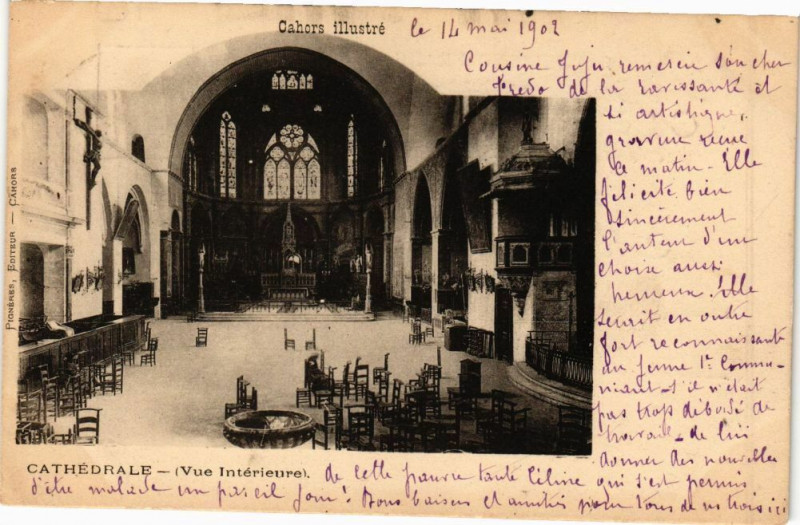 Cahors illustré
le 14 mai 1902
Cousine Juju remercie son cher
Fredo de la ravissante et
si artistique
gravure reçue
ce matin - Elle
félicite bien
sincèrement
l'auteur d'un
choix aussi
heureux. Elle
serait en outre
fort reconnaissante
au jeune 1er Commu-
niant - s'il n'était
pas trop débordé de
travail - de lui
donner des nouvelles
de cette pauvre tante Céline qui s'est permis
d'être malade un pareil jour! Bons baisers et amitiés pour tous de nous trois ici
Pionères, Editeur — Cahors
CATHÉDRALE — (Vue Intérieure).